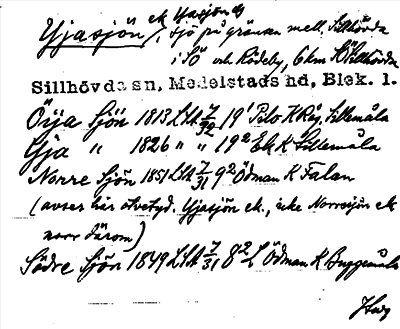 Yjasjön ek Yjasjön G
, sjö på gränsen mell. Sillhövda
i Sö och Rödeby, 6 km SÖ Sillhövda
Sillhövda sn, Medelstads hd, Blek. l.
Öija Sjön 1813 LSA 7/32 19¹ Beto K Råg. Sillemåla
Yja " 1826 " " 19² Ek K Sillemåla
Norre Sjön 1851 LSA 7/31 9² Ödman K Falan
(avser här otvetyd. Yjasjön ek., icke Norresjön ek
norr därom)
Södre Sjön 1849 LSA 7/31 8² Ödman K Buggemåla